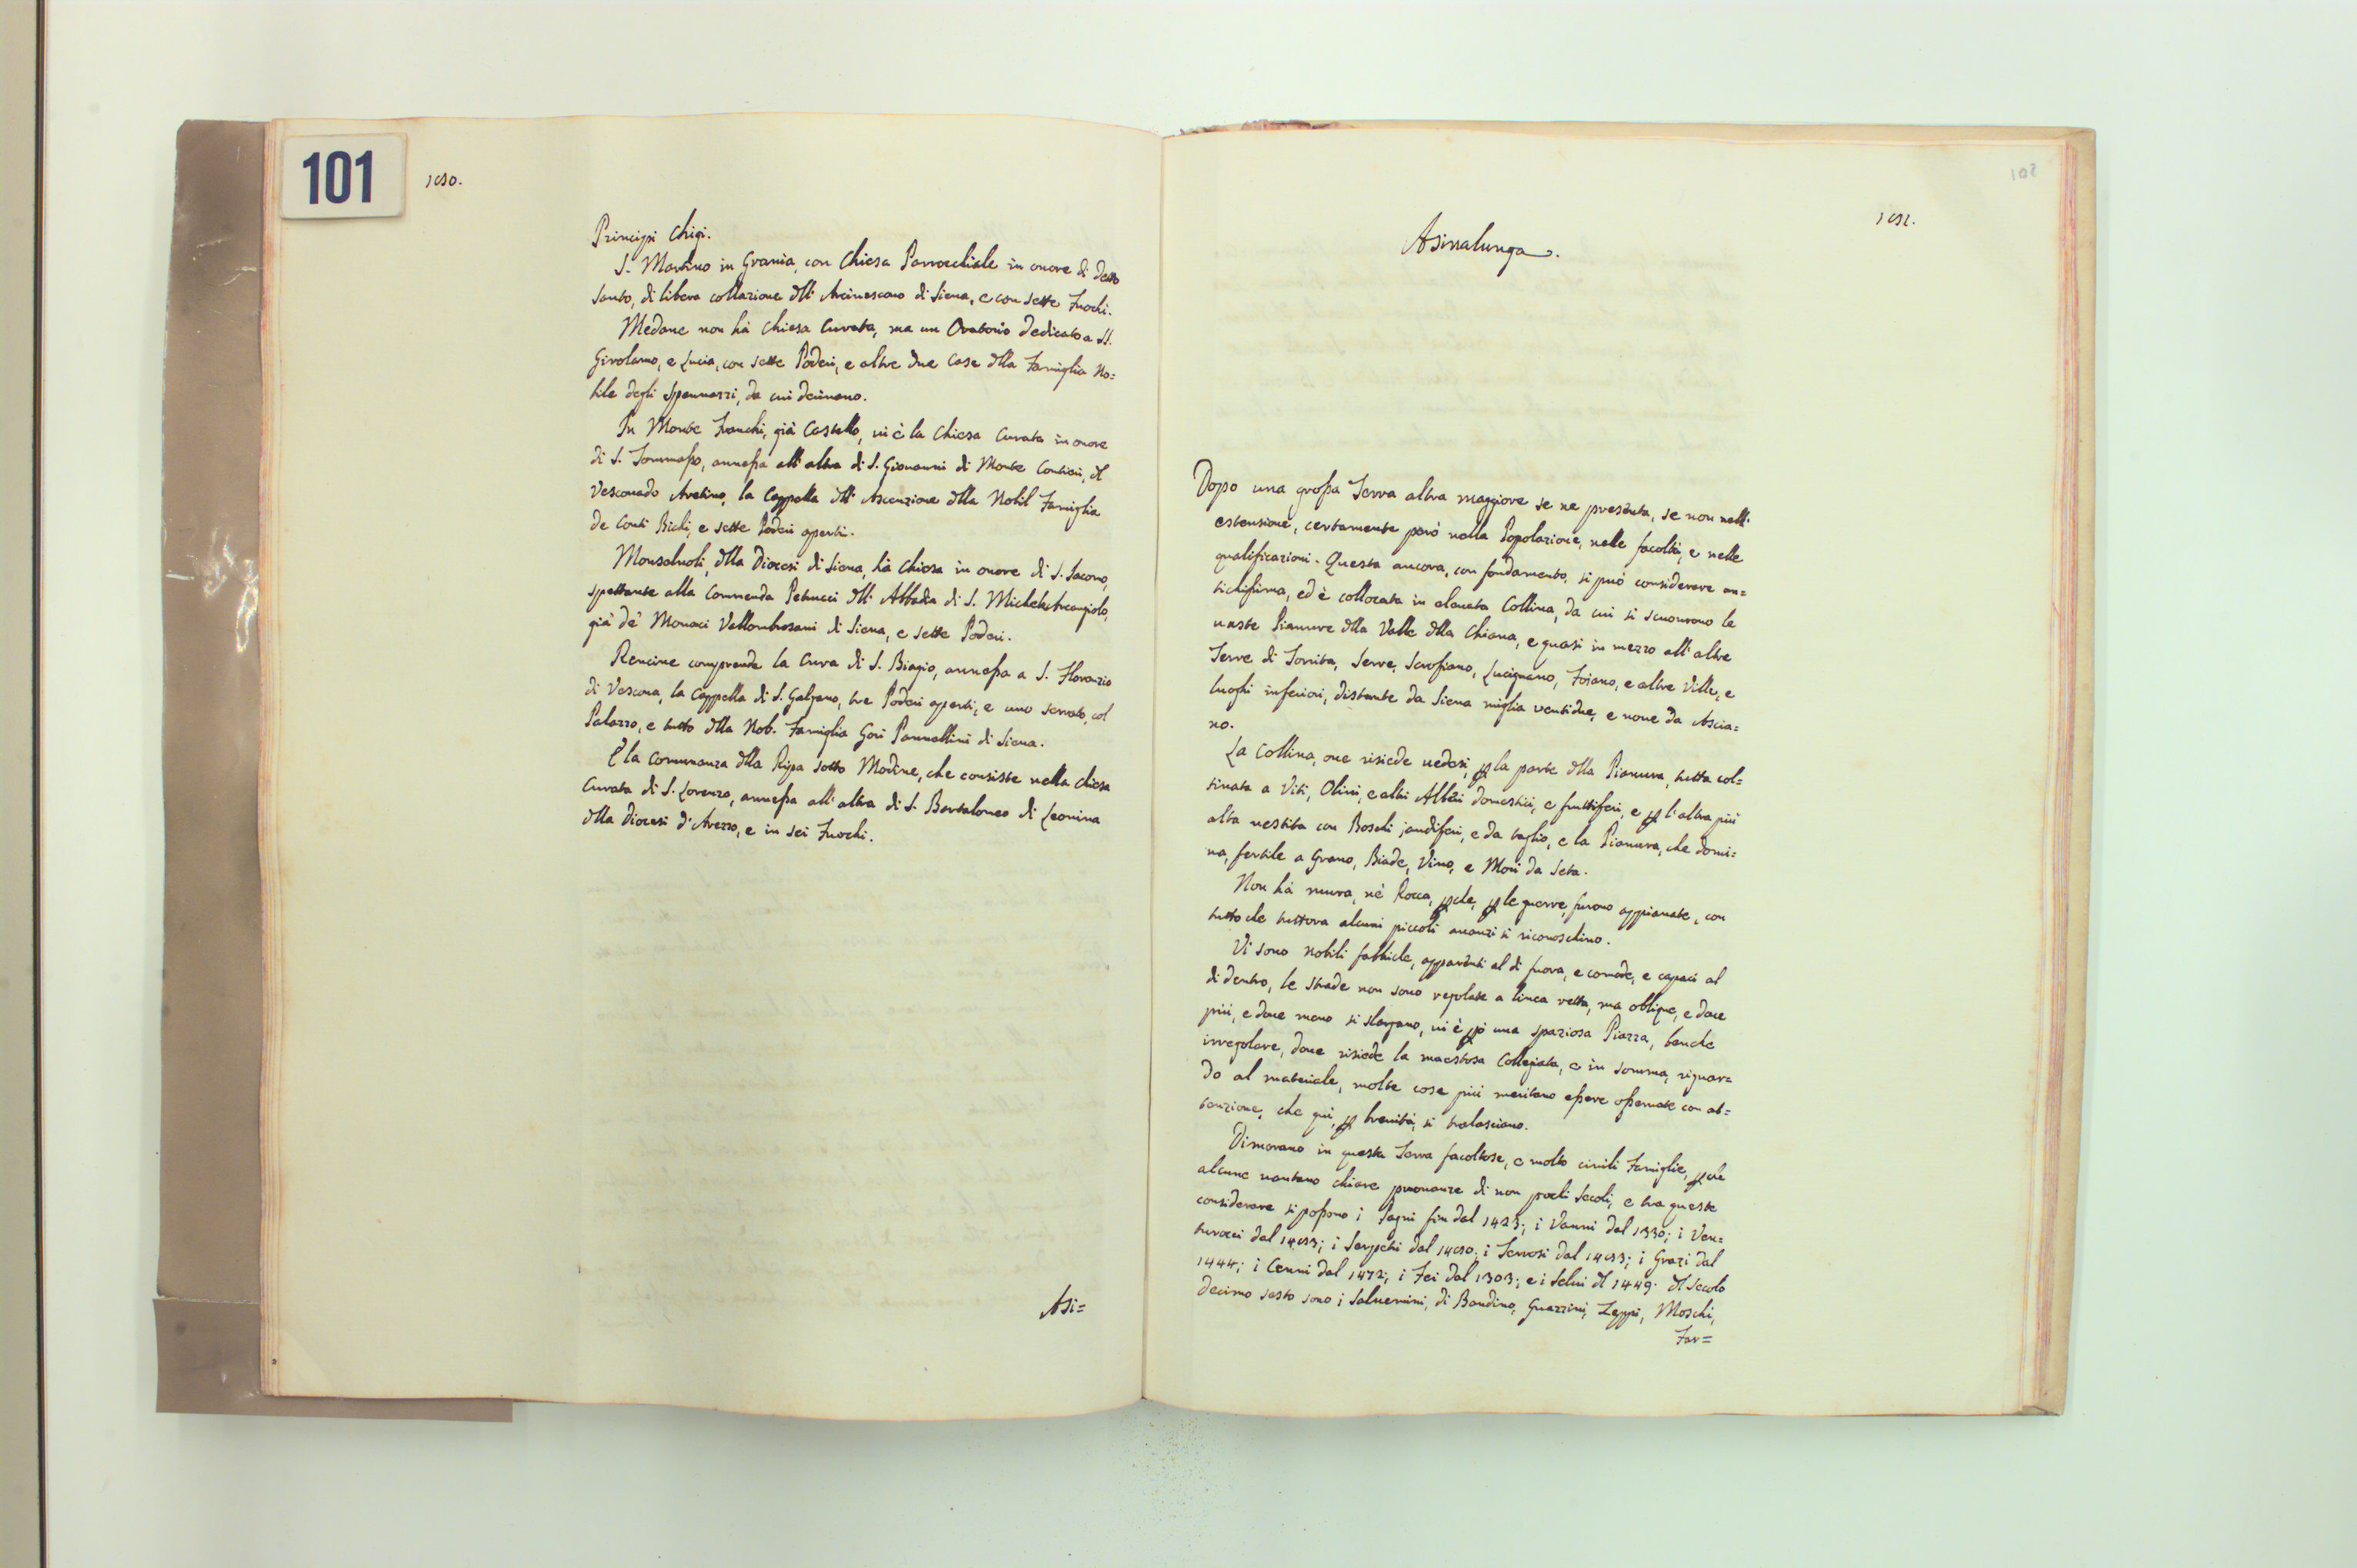 101
Principi Chigi.
S. Martino in Grania, con Chiesa Parrocchiale in onore di detto
Santo, di libera collazione dll' Arcivescovo di Siena, e con sette Fuochi.
Medane non hà Chiesa Curata, ma un Oratorio dedicato a SS.
Girolamo, e Lucia, con sette Poderi, e altre due Case dlla Famiglia No=
bile degli Spennazzi, da cui derivano.
In Monte Franchi, già Castello, vi è la Chiesa Curata in onore
di S. Tommaso, annessa all' altra di S. Giovanni di Monte Contieri, dl
Vescovado Aretino, la Cappella dll' Ascenzione dlla Nobil Famiglia
de Conti Bichi, e sette Poderi aperti.
Monsalvoli, dlla Diocesi di Siena, hà Chiesa in onore di S. Jacomo,
spettante alla Commenda Petrucci dll' Abbadia di S. Michelarcangiolo,
già de' Monaci Vallombrosani di Siena, e sette Poderi.
Rencine comprende la Cura di S. Biagio, annessa a S. Florenzio
di Vescona, la Cappella di S. Galgano, tre Poderi aperti, e uno serrato, col
Palazzo, e tutto dlla Nob. Famiglia Gori Pannellini di Siena.
E la Comunanza dlla Ripa sotto Modine, che consiste nella Chiesa
Curata di S. Lorenzo, annessa all' altra di S. Bartalomeo di Leonina
dlla Diocesi d' Arezzo, e in sei Fuochi.
Asi=
Asinalunga.
Dopo una grossa Terra altra maggiore se ne presenta, se non nell'
estensione, certamente però nella Popolazione, nelle facoltà, e nelle
qualificazioni. Questa ancora, con fondamento, si può considerare an=
tichissima, ed è collocata in elevata Collina, da cui si scuoprono le
vaste Pianure dlla Valle dlla Chiana, e quasi in mezzo all' altre
Terre di Torrita, Serre, Scrofiano, Lucignano, Foiano, e altre Ville, e
luoghi inferiori, distante da Siena miglia ventidue, e nove da Ascia=
no.
La Collina, ove risiede vedesi, p la parte dlla Pianura, tutta col=
tivata a Viti, Olivi, e altri Alberi domestici, e fruttiferi, e p l' altra più
alta vestita con Boschi jandiferi, e da taglio, e la Pianura, che domi=
na, fertile a Grano, Biade, Vino, e Mori da Seta.
Non hà mura, nè Rocca, pche, p le guerre, furono appianate, con
tutto che tuttora alcuni piccoli avanzi si riconoschino.
Vi sono nobili fabbriche, apparenti al di fuora, e comode, e capaci al
di dentro, le strade non sono regolate a linea retta, ma oblique, e dove
più, e dove meno si slargano, vi è pò una spaziosa Piazza, benche
irregolare, dove risiede la maestosa Collegiata, e in somma, riguar=
do al materiale, molte cose più meritano essere osservate con at=
tenzione, che qui, p brevità, si tralasciano.
Dimorano in questa Terra facoltose, e molto civili Famiglie, pche
alcune vantano chiare pruovanze di non pochi Secoli, e tra queste
considerare si possono i Pagni fin dal 1423; i Vanni dal 1330; i Ven=
turocci dal 1453; i Serpichi dal 1450; i Terrosi dal 1453; i Grazi dal
1444; i Cenni dal 1472; i Fei dal 1303; e i Selvi dl 1449. dl Secolo
decimo sesto sono i Salvemini, di Bandino, Guazzini, Zeppi, Moschi,
Far=